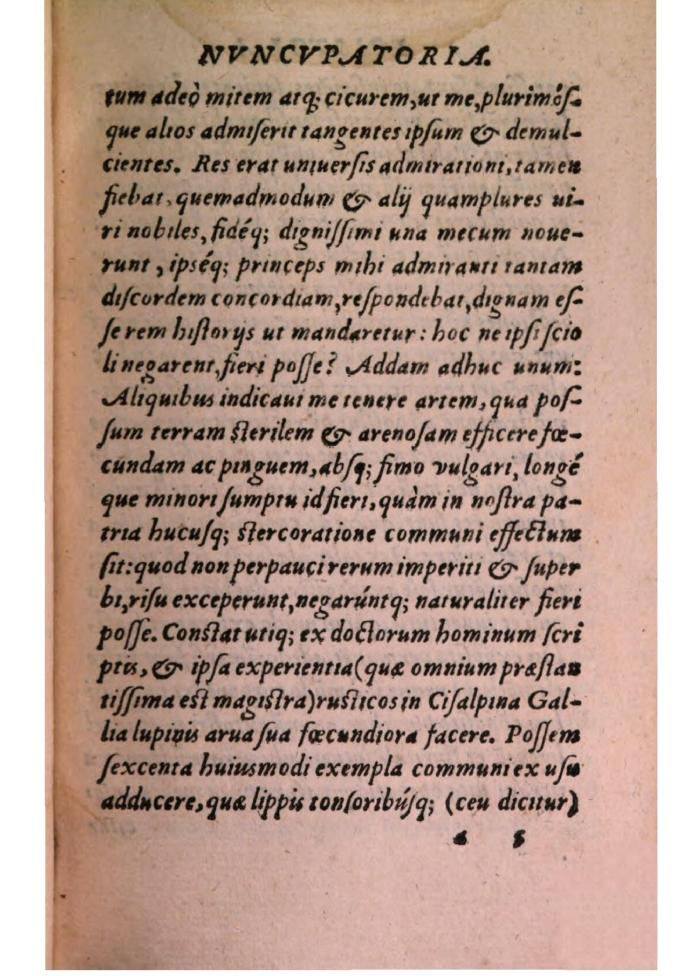 NVNCVPATORIA.
tum adeò mitem atq; cicurem, ut me, plurimósſ-
que alios admiſerit tangentes ipſum & demul-
cientes. Res erat uniuerſis admirationi, tamen
fiebat, quemadmodum & alij quamplures ui-
ri nobiles, fidéq; digniſſimi una mecum noue-
runt, ipséq; princeps mihi admiranti tantam
diſcordem concordiam, reſpondebat, dignam eſ-
ſe rem hiſtorijs ut mandaretur: hoc ne ipſi ſcio
li negarent, fieri poſſe? Addam adhuc unum:
Aliquibus indicaui me tenere artem, qua poſ-
ſum terram ſterilem & arenoſam efficere fœ-
cundam ac pinguem, abſq; fimo vulgari, longé
que minori ſumptu id fieri, quàm in noſtra pa-
tria hucuſq; ſtercoratione communi effectum
ſit: quod non perpauci rerum imperiti & ſuper
bi, riſu exceperunt, negarúntq; naturaliter fieri
poſſe. Conſtat utiq; ex doctorum hominum ſcri
ptis, & ipſa experientia (quæ omnium præſtan
tiſſima eſt magiſtra) ruſticos in Ciſalpina Gal-
lia lupinis arua ſua fœcundiora facere. Poſſem
ſexcenta huiusmodi exempla communi ex uſu
adducere, quæ lippis tonſoribúſq; (ceu dicitur)
5